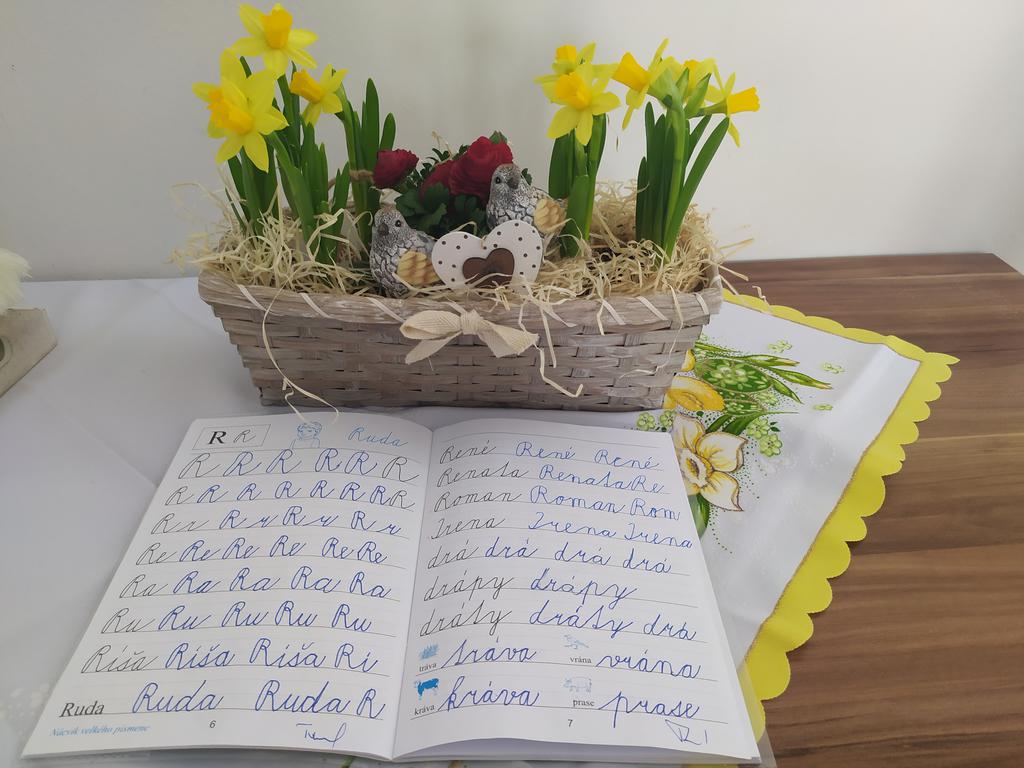 R R Ruda
R R R R R R
R R R R R R R R
Rr Rr Rr Rr
Re Re Re Re Re Re
Ra Ra Ra Ra Ra
Ru Ru Ru Ru Ru
Ríša Ríša Ríša Rí
Ruda Ruda Ruda R
Nácvik velkého písmene
6
René René René
Renata Renata Re
Roman Roman Rom
Irena Irena Irena
drá drá drá drá
drápy drápy
dráty dráty drá
tráva tráva vrána vrána
kráva kráva prase prase
7